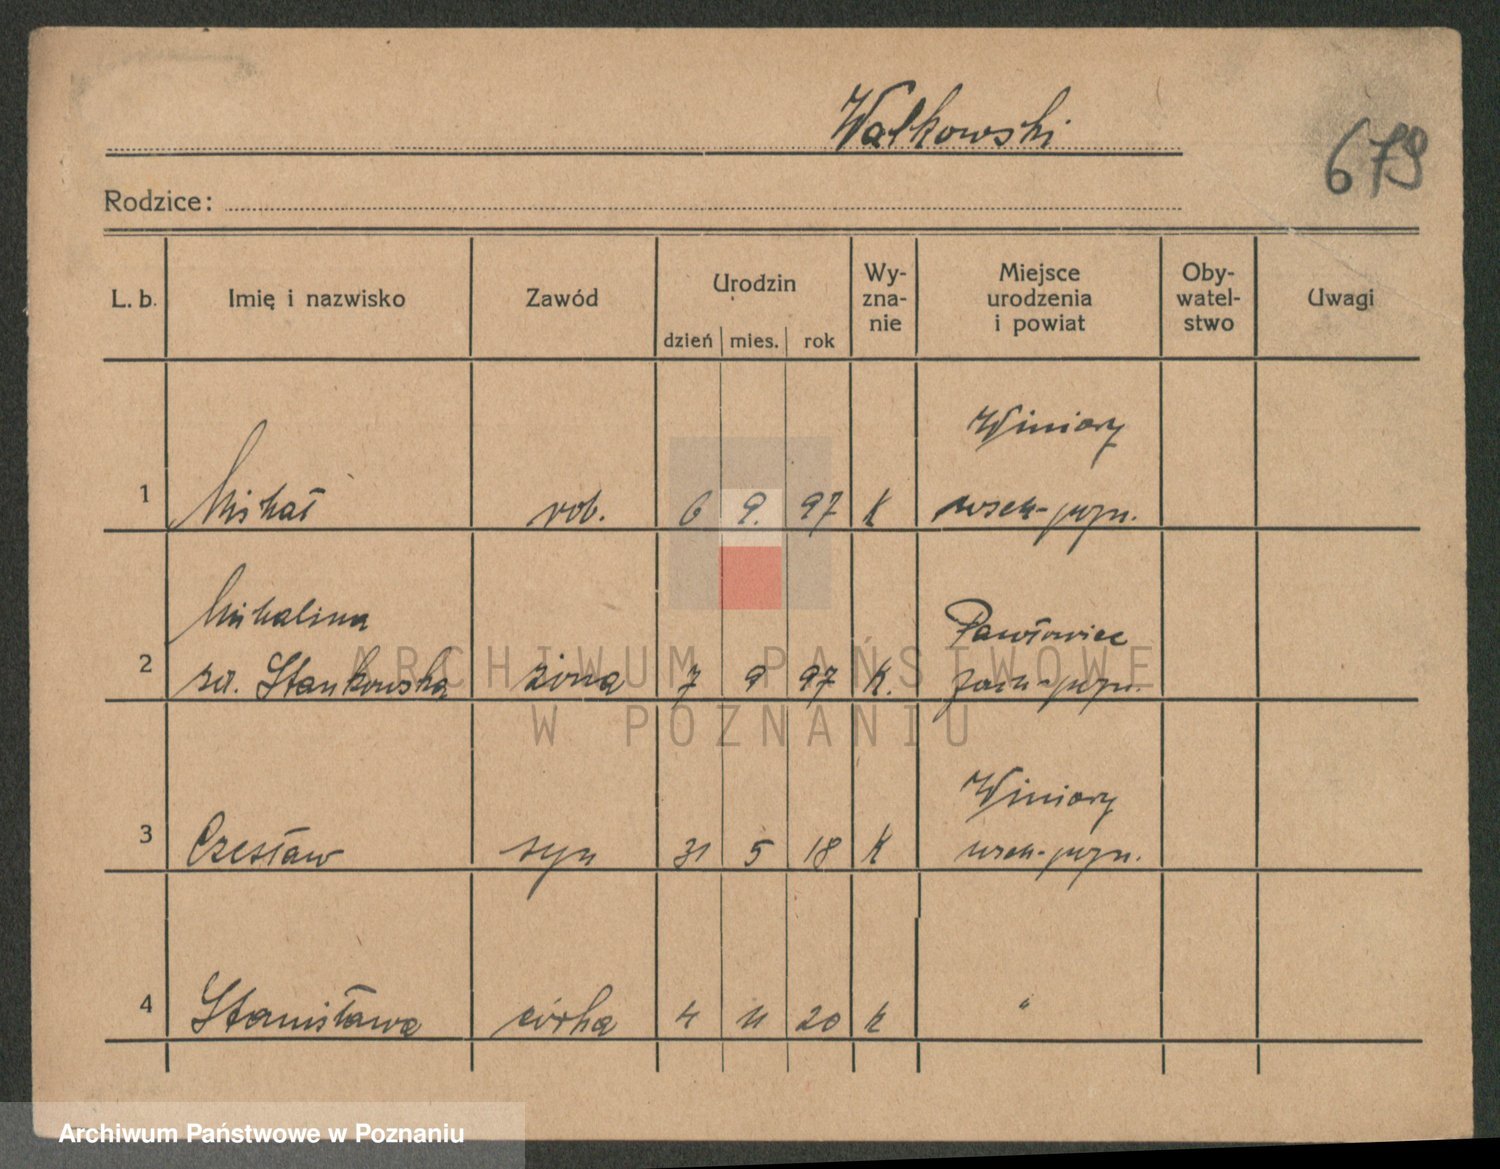 Walkowski
679
Rodzice:
L. b. Imię i nazwisko Zawód Urodzin Wy-zna-nie Miejsce urodzenia i powiat Oby-watel-stwo Uwagi
dzień mies. rok
Winiary
1 Michał rob. 6 9. 97 K
Michalina Pawłowice
2 żona 7 9 97 K.
Stankowska
ARCHIWUM PAŃSTWOWE
W POZNANIU
Winiary
3 Czesław syn 31 5 18 K
4 Stanisława córka 4 11 20 k "
Archiwum Państwowe w Poznaniu